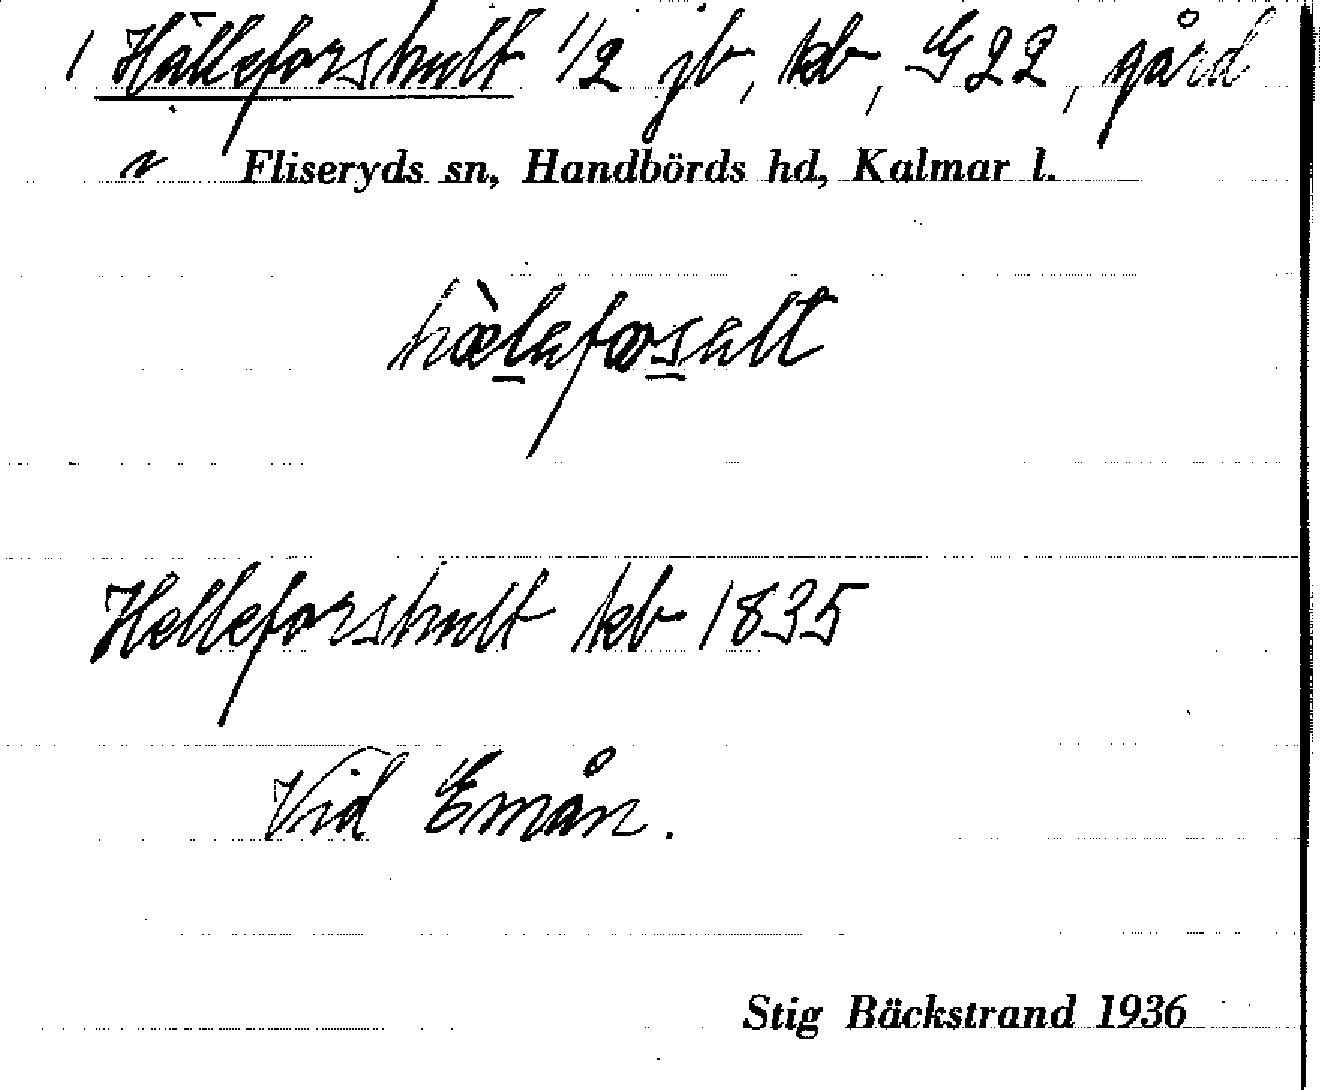 1 Hälleforshult 1/2 jb, kb, G22, gård
Fliseryds sn, Handbörds hd, Kalmar l.
hæ̀leforselt
Helleforshult kb 1835
Vid Emån.
Stig Bäckstrand 1936